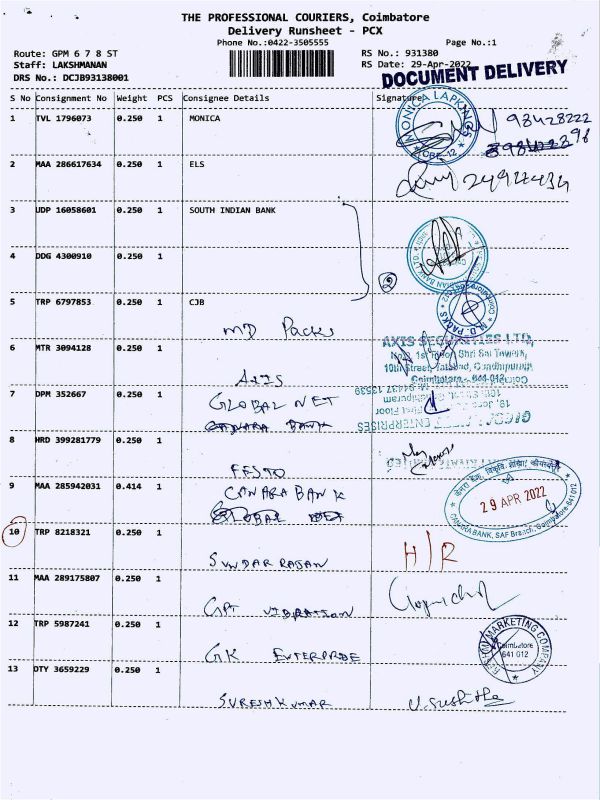 THE PROFESSIONAL COURIERS, Coimbatore
Delivery Runsheet - PCX
Phone No.:0422-3505555
Page No.:1
Route: GPM 6 7 8 ST
RS No.: 931380
Staff: LAKSHMANAN
RS Date: 29-Apr-2022
DRS No.: DCJB93138001
DOCUMENT DELIVERY
S No Consignment No Weight PCS Consignee Details Signature
1 TVL 1796073 0.250 1 MONICA
MONICA LAPKINGS
CBE-12
2 MAA 286617634 0.250 1 ELS
3 UDP 16058601 0.250 1 SOUTH INDIAN BANK
4 DDG 4300910 0.250 1
2
5 TRP 6797853 0.250 1 CJB
MD Packs
M.D. PACKS
6 MTR 3094128 0.250 1
AXIS SECURITIES LTD,
No.2, 1st Floor, Shri Sai Towers,
10th Street, Tatabad, Gandhipuram
Coimbatore - 641 012
AXIS
7 DPM 352667 0.250 1
GLOBAL NET
CANARA BANK
8 HRD 399281779 0.250 1
FESTO
9 MAA 285942031 0.414 1
CANARA BANK
GLOBAL NET
29 APR 2022
CANARA BANK, SAF Branch, Coimbatore-641 012
10 TRP 8218321 0.250 1
SUNDAR RAJAN
H/R
11 MAA 289175807 0.250 1
GPT VIBRATION
12 TRP 5987241 0.250 1
GK ENTERPRISE
MARKETING COMPANY
Coimbatore
641 012
13 DTY 3659229 0.250 1
SURESH KUMAR
U. Sushitha